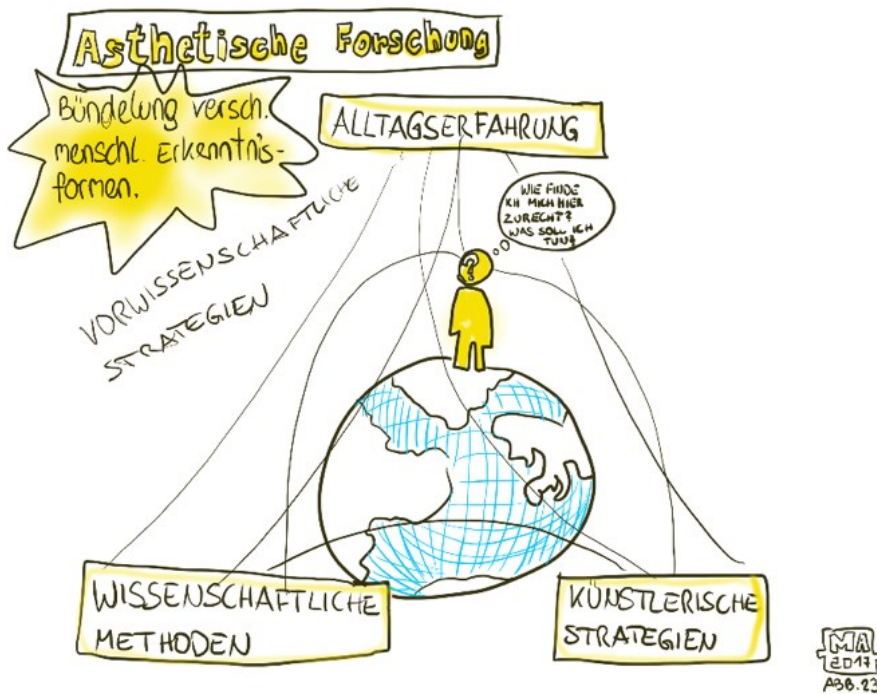 Ästhetische Forschung
Bündelung versch.
menschl. Erkenntnis-
formen.
ALLTAGSERFAHRUNG
VORWISSENSCHAFTLICHE
STRATEGIEN
WIE FINDE
ICH MICH HIER
ZURECHT?
WAS SOLL ICH
TUN?
?
WISSENSCHAFTLICHE
METHODEN
KÜNSTLERISCHE
STRATEGIEN
MA
2017
ABB. 23